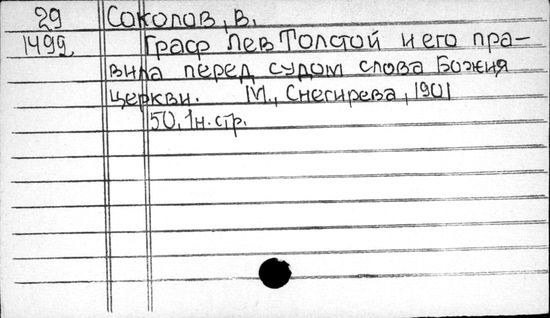 29 Соколов, В.
1499 Граф Лев Толстой и его пра-
вила перед судом слова Божия
церкви. М., Снегирева, 1901
50, 1 н. стр.